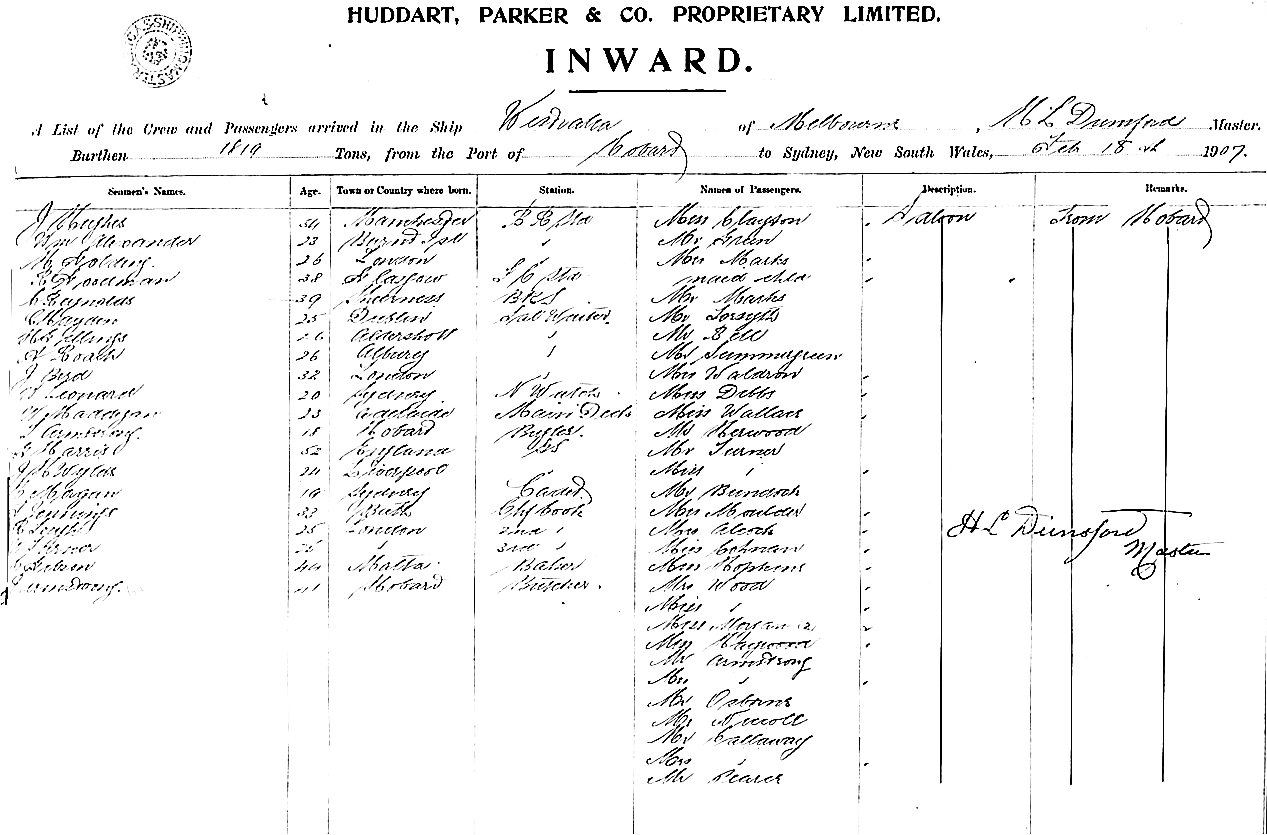 HUDDART, PARKER & CO. PROPRIETARY LIMITED.
INWARD.
A List of the Crew and Passengers arrived in the Ship Westralia of Melbourne, H L Dunsford Master.
Burthen 1819 Tons, from the Port of Hobart to Sydney, New South Wales, Feb 18th 1907.
Seamen's Names. Age. Town or Country where born. Station. Names of Passengers. Description. Remarks.
J Hughes 34 Manchester Miss Clayson Saloon From Hobart
Wm Alexander 23 Mr Green
26 London Mrs Marks
38 Glasgow maid child
Reynolds 39 Inverness BKS Mr Marks
C Hayden 25 Dublin Sal Waiter Mr Forsyth
26 Aldershott " Mr Bell
A Roach 26 Albury " Mr Summergreen
J Byrd 32 London Miss Waldron
Leonard 20 Sydney N Watch Miss Debbs
Maddigan 23 Adelaide Main Deck Miss Wallace
Armstrong 18 Hobart Bugler. Mr Herwood
Harris 52 England Mr Turner
24 Liverpool Miss "
Magan 19 Sydney Cadet Mr Bundock
Jennings 33 Chf Cook Mrs Moulder
25 London 2nd " Mrs Alcock
25 " 3rd " Miss Cohnan
44 Malta Baker Miss Hopkins
Armstrong. 41 Hobart Butcher. Mrs Wood
Miss "
Miss Morgan (2)
Miss Haywood
Mr Armstrong
Mrs "
Mr Osborne
Mr Nicoll
Mr Callaway
Mrs "
Mr Pearce
H L Dunsford
Master